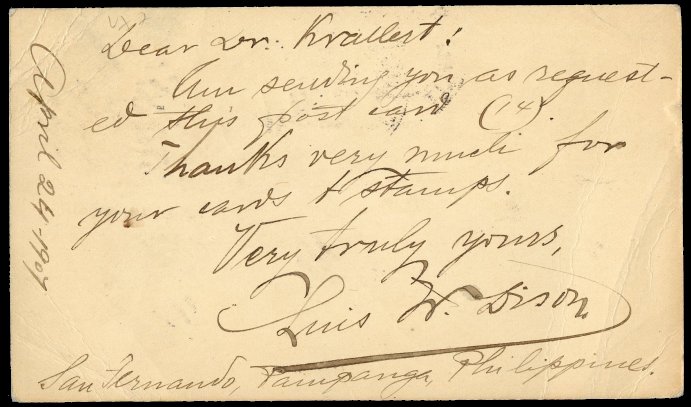 Dear Dr. Krallert:
Am sending you, as request-
ed this post card (14).
Thanks very much for
your cards & stamps.
Very truly yours,
Luis W. Dison.
San Fernando, Pampanga, Philippines.
April 24-1907